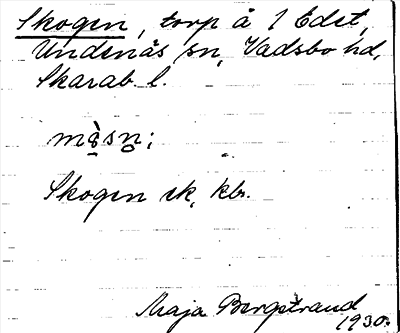 Skogen, torp å 1 Edet,
Undenäs sn, Vadsbo hd,
Skarab. l.
Skogen ek, kbr.
Maja Bergstrand
1930.